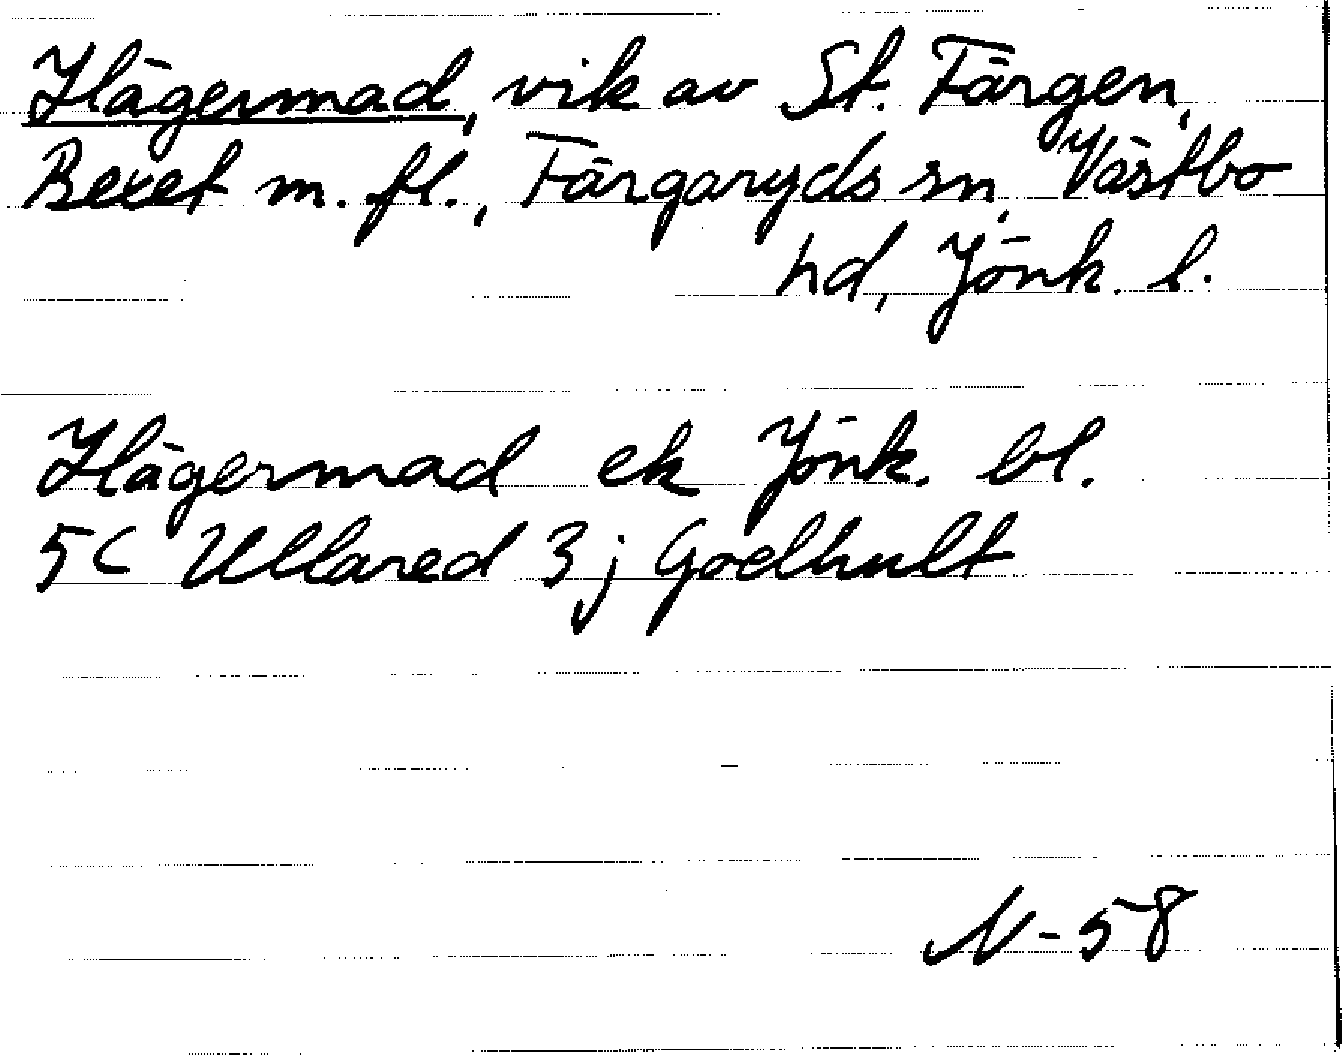 Hägermad, vik av St. Färgen,
Bexet m. fl., Färgaryds sn, Västbo
hd, Jönk. l.
Hägermad ek Jönk. bl.
5C Ullared 3j Goelhult
N-58